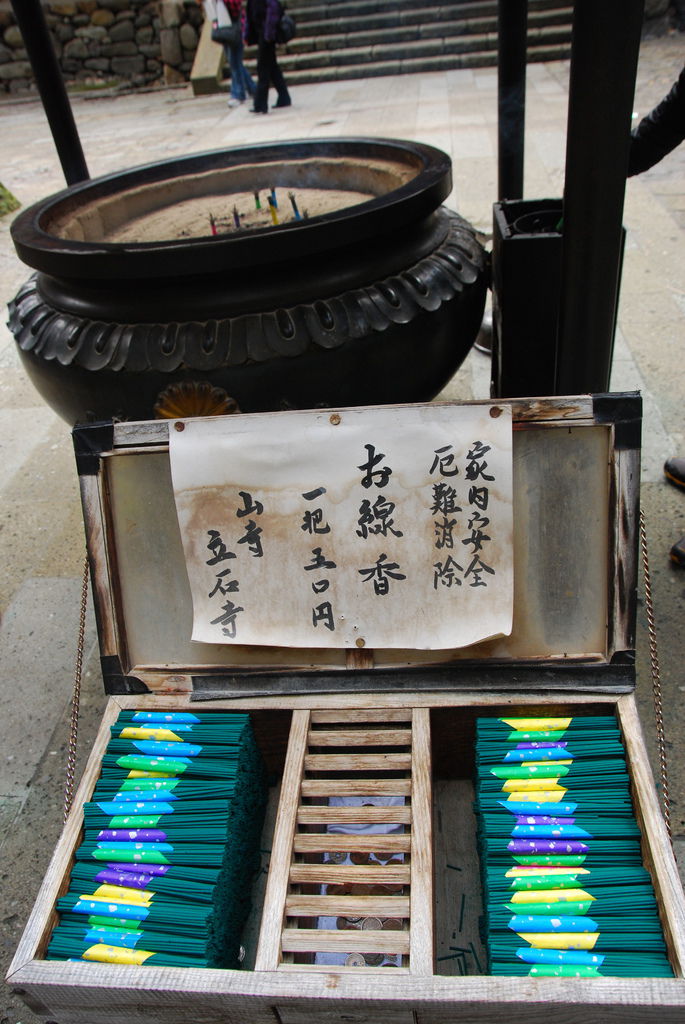 家内安全
厄難消除
お線香
一把五〇円
山寺
立石寺